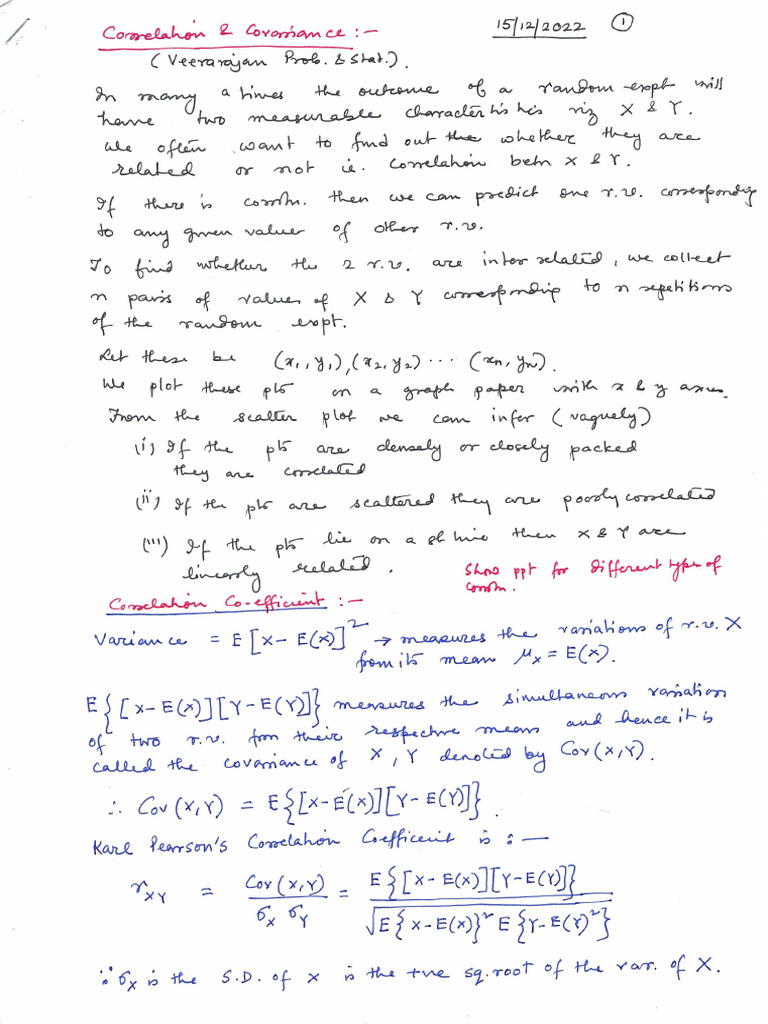 Correlation & Covariance :- 15/12/2022 1
(Veerarajan Prob. & Stat.).
In many a times the outcome of a random expt will
have two measurable characteristics viz X & Y.
We often want to find out whether they are
related or not ie. Correlation betn X & Y.
If there is corrn. then we can predict one r.v. corresponding
to any given values of other r.v.
To find whether the 2 r.v. are inter related, we collect
n pairs of values of X & Y corresponding to n repetitions
of the random expt.
Let these be (x1, y1), (x2, y2) ... (xn, yn).
We plot these pts on a graph paper with x & y axes.
From the scatter plot we can infer (vaguely)
(i) If the pts are densely or closely packed
they are correlated
(ii) If the pts are scattered they are poorly correlated
(iii) If the pts lie on a st line then X & Y are
linearly related.
Show ppt for different type of
corrn.
Correlation Co-efficient :-
Variance = E[X - E(X)]² → measures the variations of r.v. X
from its mean μx = E(X).
E{[X - E(X)][Y - E(Y)]} measures the simultaneous variation
of two r.v. from their respective means and hence it is
called the covariance of X, Y denoted by Cov(X,Y).
∴ Cov(X,Y) = E{[X - E(X)][Y - E(Y)]}.
Karl Pearson's Correlation Coefficient is :-
rXY = Cov(X,Y) / σX σY = E{[X - E(X)][Y - E(Y)]} / √E{X - E(X)}² E{Y - E(Y)²}
∵ σX is the S.D. of X is the +ve sq. root of the var. of X.